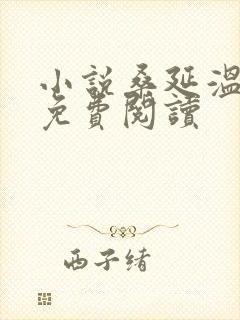 小説桑延溫
免費閱讀
西子緒